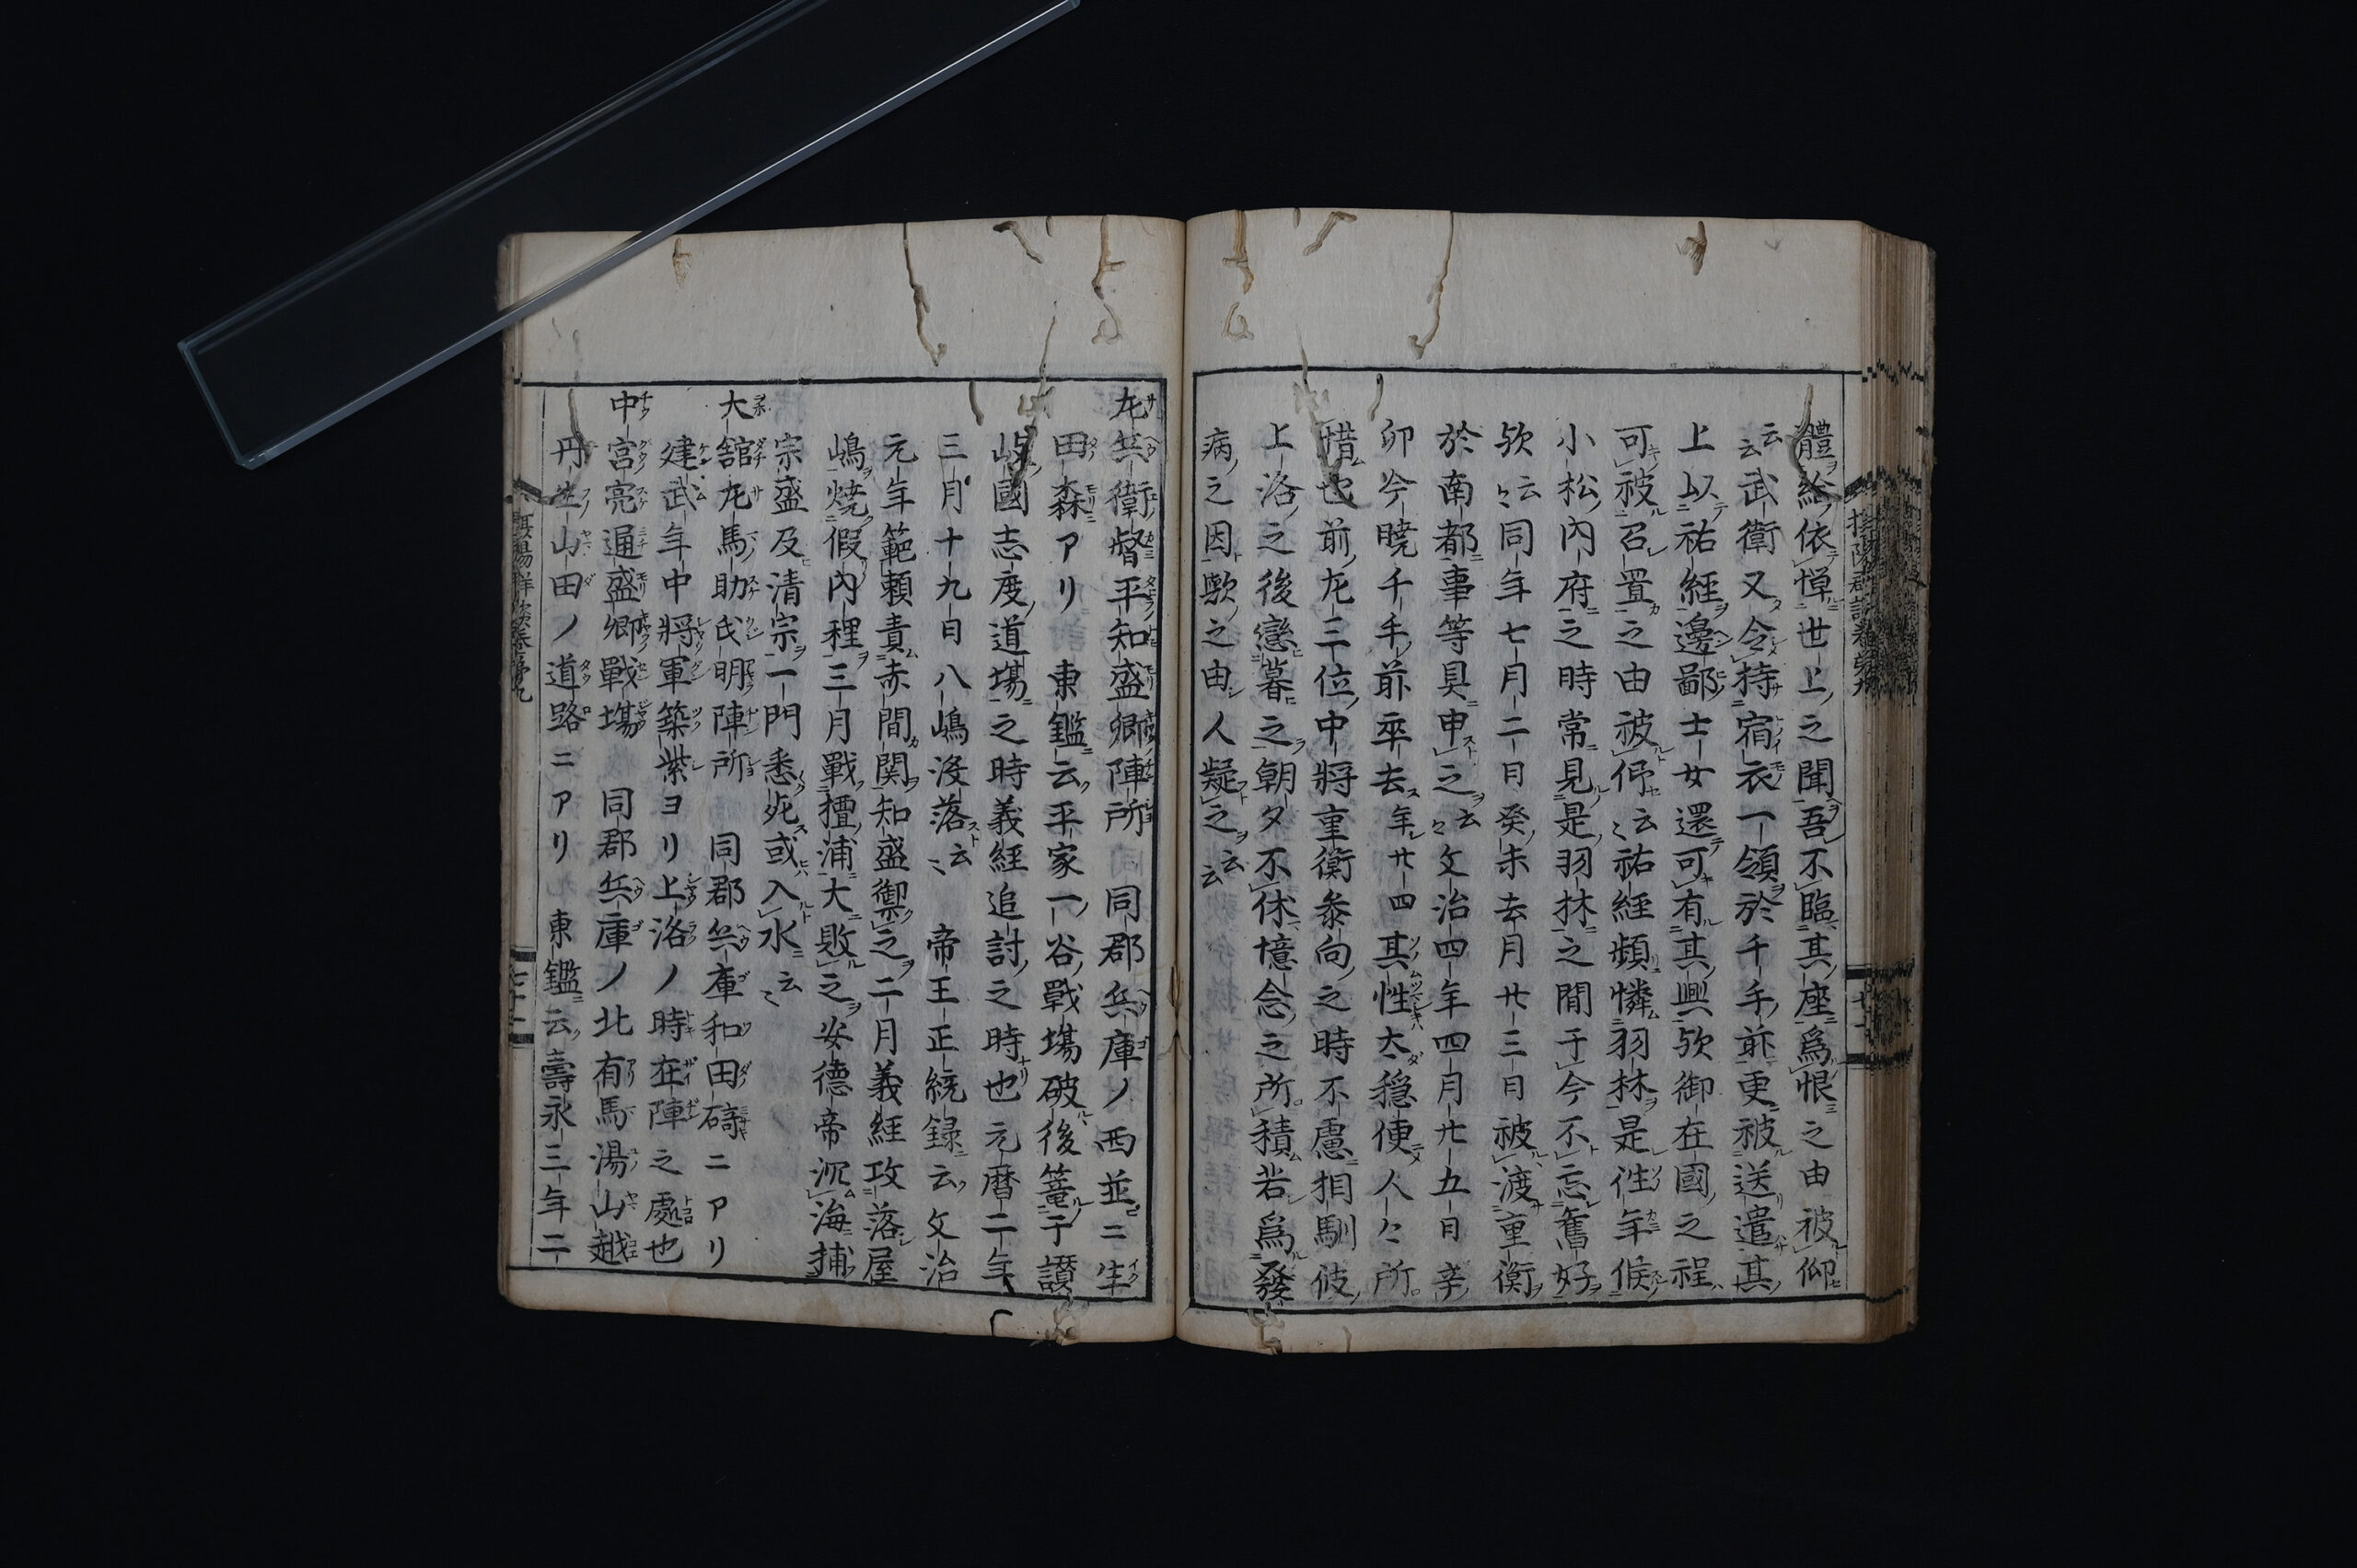 體給依憚世上之聞吾不臨其座為恨之由被仰
云云武衛又令持宿衣一領於千手前更被送遣其
上以祐経邊鄙士女還可有其興欤御在國之程
可被召置之由被仰云〻祐経頻憐羽林是往年候
小松内府之時常見是羽林之間于今不忘舊好
欤云〻同年七月二日癸未去月廿三日被渡重衡
於南都事等具申之云〻文治四年四月廿五日辛
卯今暁千手前卒去年廿四其性太穏便人々所
惜也前左三位中將重衡参向之時不慮相馴彼
上洛之後戀慕之朝夕不休憶念之所積若為發
病之因歟之由人疑之云云
左兵衛督平知盛卿陣所 同郡兵庫ノ西並ニ生
田森アリ 東鑑云平家一谷戰場破後篭于讃
岐國志度道場之時義経追討之時也元暦二年
三月十九日八嶋没落云〻 帝王正統録云文治
元年範頼責赤間関知盛禦之二月義経攻落屋
嶋焼假内裡三月戰壇浦大敗之安德帝沉海捕
宗盛及清宗一門悉死或入水云〻
大舘左馬助氏明陣所 同郡兵庫和田碕ニアリ
建武年中將軍築紫ヨリ上洛ノ時在陣之處也
中宮亮通盛卿戰場 同郡兵庫ノ北有馬湯山越
丹生山田ノ道路ニアリ 東鑑云壽永三年二